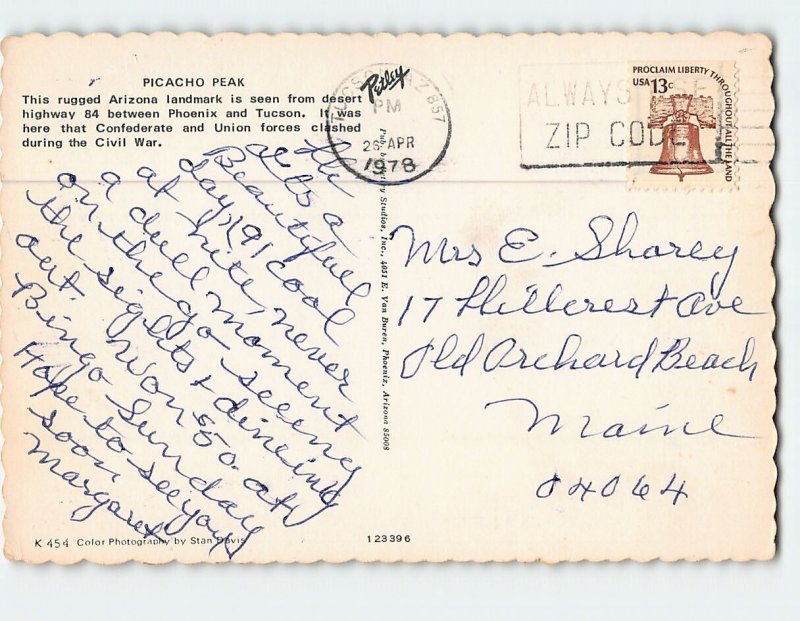 PICACHO PEAK
This rugged Arizona landmark is seen from desert
highway 84 between Phoenix and Tucson. It was
here that Confederate and Union forces clashed
during the Civil War.
Petley
TUCSON, AZ 857
PM
26 APR
1978
ALWAYS USE
ZIP CODE
PROCLAIM LIBERTY THROUGHOUT ALL THE LAND
USA 13c
Its a
Beautifuel
day, 91 cool
at nite, never
a dull moment
on the go seeing
the sights & dineing
out. Won 50. at
Bingo Sunday
Hope to see you
soon
Margaret
Pub. by Petley Studios, Inc., 4051 E. Van Buren, Phoenix, Arizona 85008
Mrs E. Shorey
17 Hillcrest Ave
Old Orchard Beach
Maine
04064
K 454 Color Photography by Stan Davis
123396